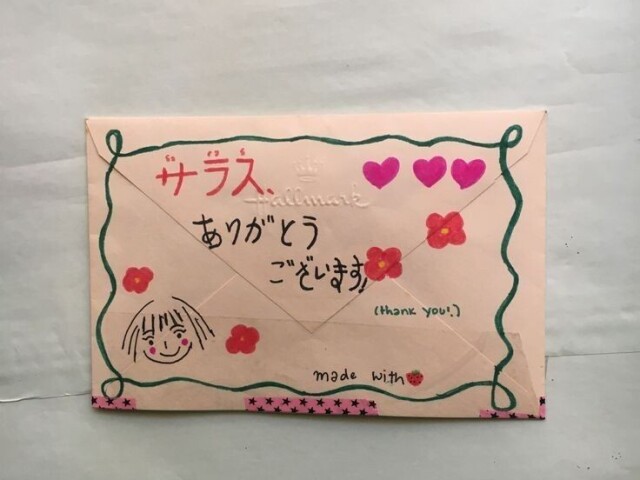 ザラス、
Hallmark
ありがとう
ございます!
(thank you!)
made with